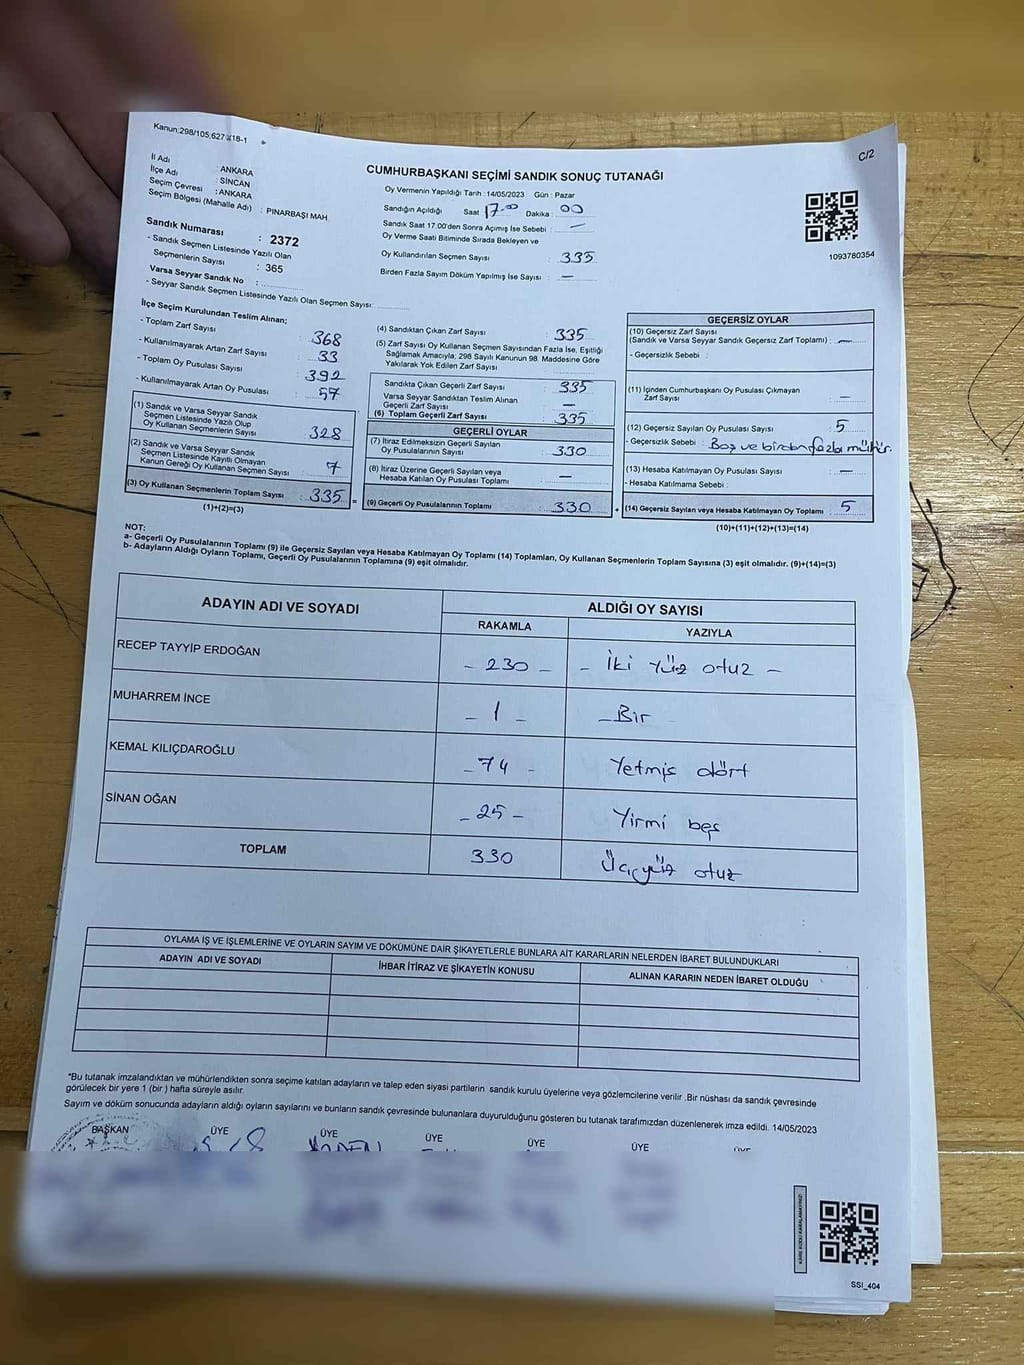 Kanun:298/105,627 X18-1
C/2
İl Adı : ANKARA
İlçe Adı : SİNCAN
Seçim Çevresi : ANKARA
Seçim Bölgesi (Mahalle Adı) : PINARBAŞI MAH
Sandık Numarası : 2372
- Sandık Seçmen Listesinde Yazılı Olan
Seçmenlerin Sayısı : 365
Varsa Seyyar Sandık No :
- Seyyar Sandık Seçmen Listesinde Yazılı Olan Seçmen Sayısı:
CUMHURBAŞKANI SEÇİMİ SANDIK SONUÇ TUTANAĞI
Oy Vermenin Yapıldığı Tarih : 14/05/2023 Gün : Pazar
Sandığın Açıldığı Saat 17.00 Dakika : 00
Sandık Saat 17.00'den Sonra Açımış İse Sebebi : —
Oy Verme Saati Bitiminde Sırada Bekleyen ve
Oy Kullandırılan Seçmen Sayısı : 335
Birden Fazla Sayım Döküm Yapılmış İse Sayısı : —
1093780354
İlçe Seçim Kurulundan Teslim Alınan;
- Toplam Zarf Sayısı : 368
- Kullanılmayarak Artan Zarf Sayısı : 33
- Toplam Oy Pusulası Sayısı : 392
- Kullanılmayarak Artan Oy Pusulası : 57
(1) Sandık ve Varsa Seyyar Sandık
Seçmen Listesinde Yazılı Olup
Oy Kullanan Seçmenlerin Sayısı : 328
(2) Sandık ve Varsa Seyyar Sandık
Seçmen Listesinde Kayıtlı Olmayan
Kanun Gereği Oy Kullanan Seçmen Sayısı : 7
(3) Oy Kullanan Seçmenlerin Toplam Sayısı : 335 =
(1)+(2)=(3)
(4) Sandıktan Çıkan Zarf Sayısı : 335
(5) Zarf Sayısı Oy Kullanan Seçmen Sayısından Fazla İse, Eşitliği
Sağlamak Amacıyla; 298 Sayılı Kanunun 98. Maddesine Göre
Yakılarak Yok Edilen Zarf Sayısı :
Sandıkta Çıkan Geçerli Zarf Sayısı : 335
Varsa Seyyar Sandıktan Teslim Alınan
Geçerli Zarf Sayısı : —
(6) Toplam Geçerli Zarf Sayısı : 335
GEÇERLİ OYLAR
(7) İtiraz Edilmeksizin Geçerli Sayılan
Oy Pusulalarının Sayısı : 330
(8) İtiraz Üzerine Geçerli Sayılan veya
Hesaba Katılan Oy Pusulası Toplamı : —
(9) Geçerli Oy Pusulalarının Toplamı : 330 +
GEÇERSİZ OYLAR
(10) Geçersiz Zarf Sayısı
(Sandık ve Varsa Seyyar Sandık Geçersiz Zarf Toplamı) : —
- Geçersizlik Sebebi :
(11) İçinden Cumhurbaşkanı Oy Pusulası Çıkmayan
Zarf Sayısı : —
(12) Geçersiz Sayılan Oy Pusulası Sayısı : 5
- Geçersizlik Sebebi : Boş ve birden fazla mühür.
(13) Hesaba Katılmayan Oy Pusulası Sayısı : —
- Hesaba Katılmama Sebebi :
(14) Geçersiz Sayılan veya Hesaba Katılmayan Oy Toplamı : 5
(10)+(11)+(12)+(13)=(14)
NOT:
a- Geçerli Oy Pusulalarının Toplamı (9) ile Geçersiz Sayılan veya Hesaba Katılmayan Oy Toplamı (14) Toplamları, Oy Kullanan Seçmenlerin Toplam Sayısına (3) eşit olmalıdır. (9)+(14)=(3)
b- Adayların Aldığı Oyların Toplamı, Geçerli Oy Pusulalarının Toplamına (9) eşit olmalıdır.
ADAYIN ADI VE SOYADI ALDIĞI OY SAYISI
RAKAMLA YAZIYLA
RECEP TAYYİP ERDOĞAN - 230 - - İki Yüz otuz -
MUHARREM İNCE - 1 - - Bir
KEMAL KILIÇDAROĞLU - 74 - Yetmiş dört
SİNAN OĞAN - 25 - Yirmi beş
TOPLAM 330 Üçyüz otuz
OYLAMA İŞ VE İŞLEMLERİNE VE OYLARIN SAYIM VE DÖKÜMÜNE DAİR ŞİKAYETLERLE BUNLARA AİT KARARLARIN NELERDEN İBARET BULUNDUKLARI
ADAYIN ADI VE SOYADI İHBAR İTİRAZ VE ŞİKAYETİN KONUSU ALINAN KARARIN NEDEN İBARET OLDUĞU
"Bu tutanak imzalandıktan ve mühürlendikten sonra seçime katılan adayların ve talep eden siyasi partilerin sandık kurulu üyelerine veya gözlemcilerine verilir .Bir nüshası da sandık çevresinde
görülecek bir yere 1 (bir ) hafta süreyle asılır.
Sayım ve döküm sonucunda adayların aldığı oyların sayılarını ve bunların sandık çevresinde bulunanlara duyurulduğunu gösteren bu tutanak tarafımızdan düzenlenerek imza edildi. 14/05/2023
BAŞKAN ÜYE ÜYE ÜYE ÜYE ÜYE
KARE KODU KARALAMAYINIZ!
SSI_404